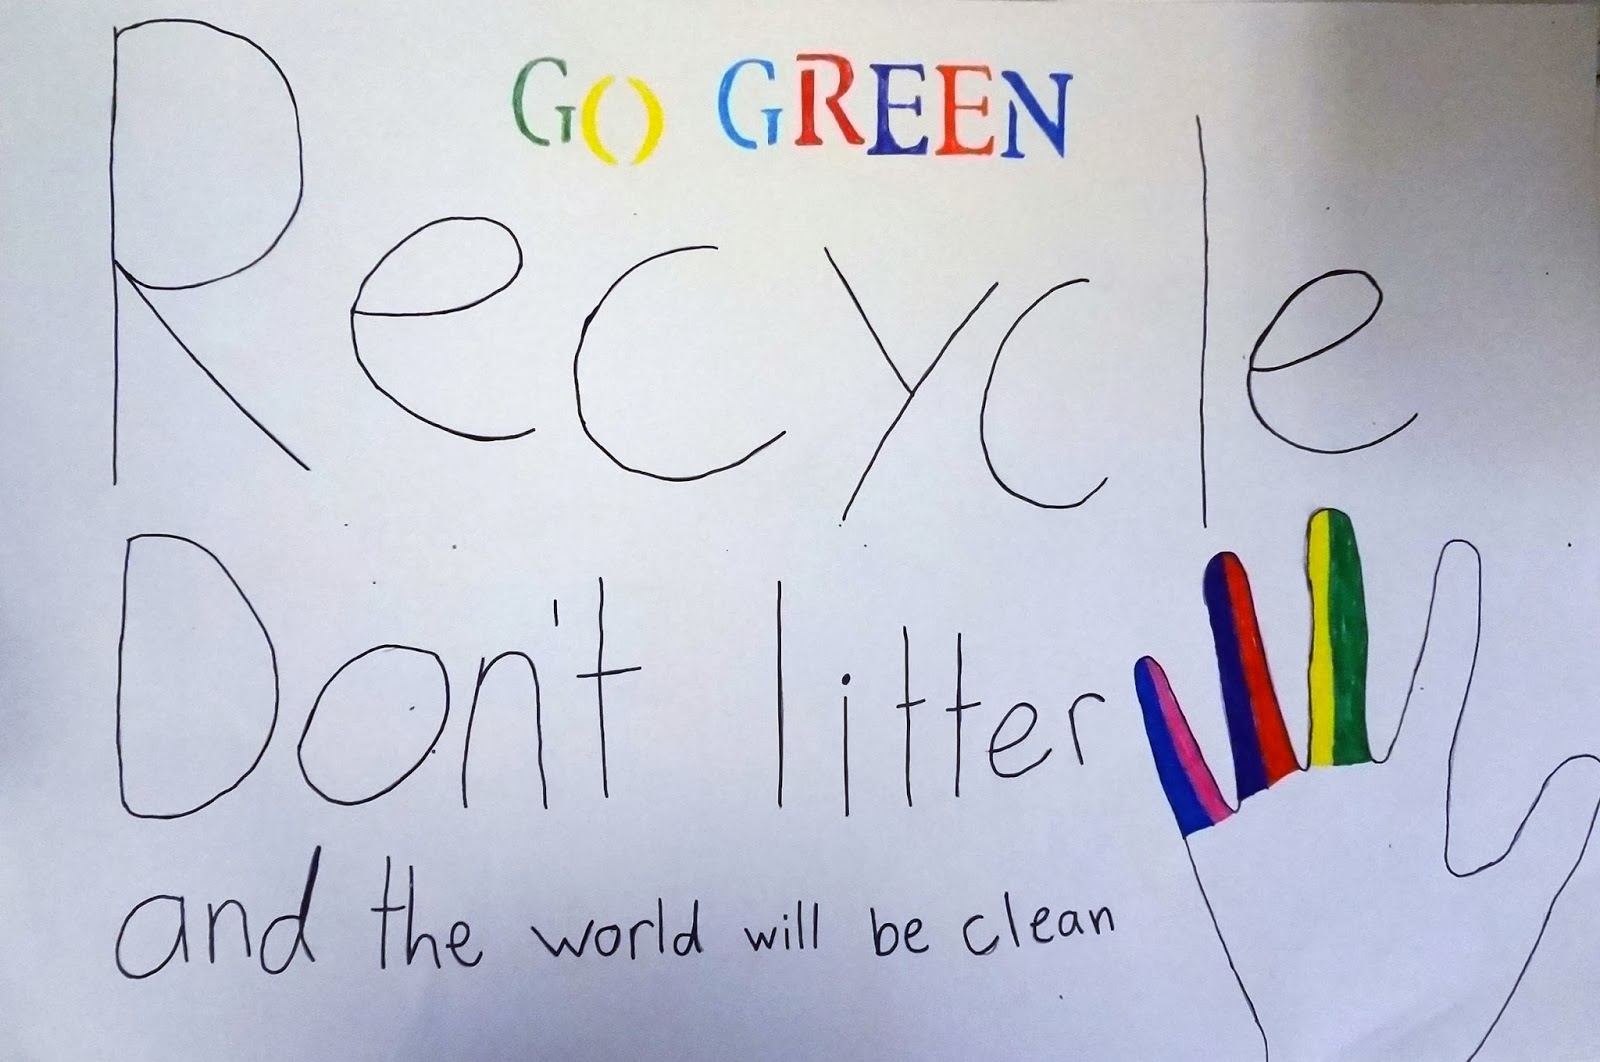 GO GREEN
Recycle
Don't litter
and the world will be clean